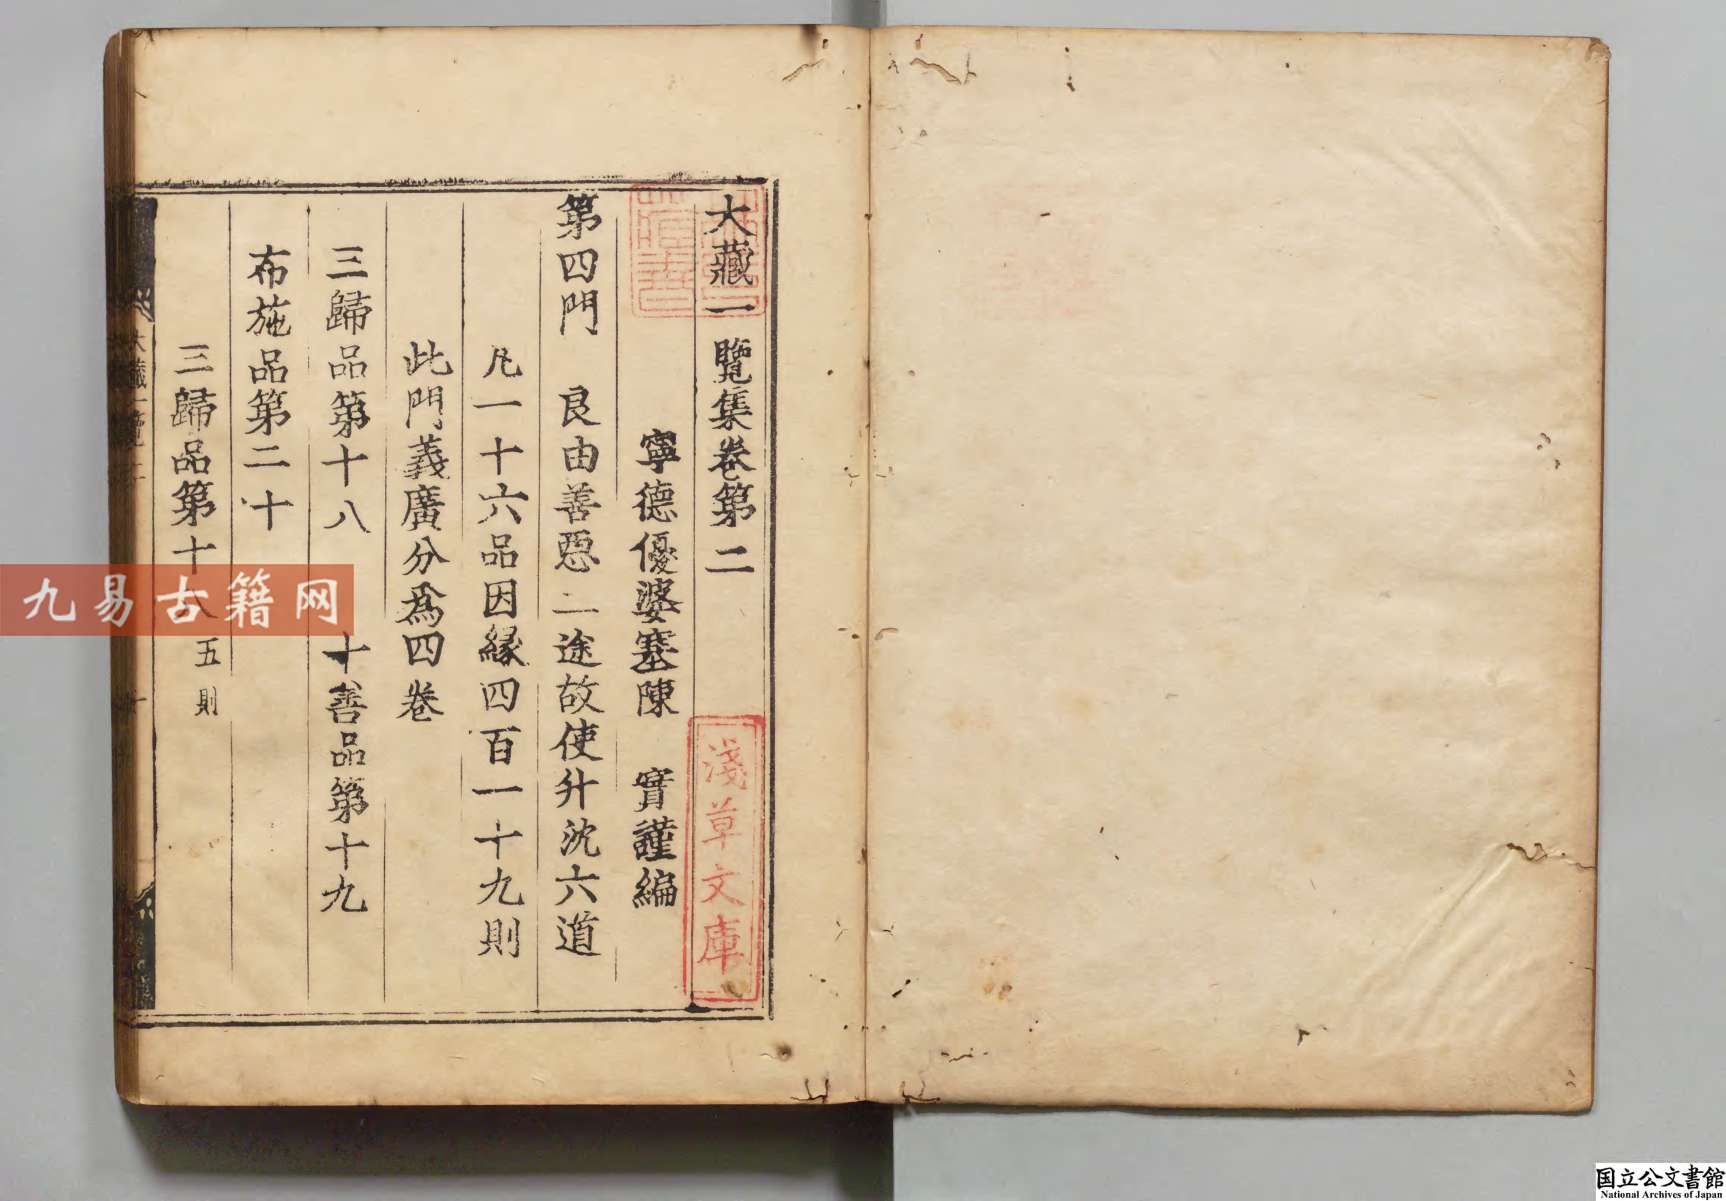 大藏一覽集卷第二
寧德優婆塞陳　實謹編
第四門　良由善惡二途故使升沈六道
凡一十六品因緣四百一十九則
此門義廣分爲四卷
三歸品第十八　十善品第十九
布施品第二十
三歸品第十八　五則
大藏一覽二
淺草文庫
九易古籍网
国立公文書館
National Archives of Japan